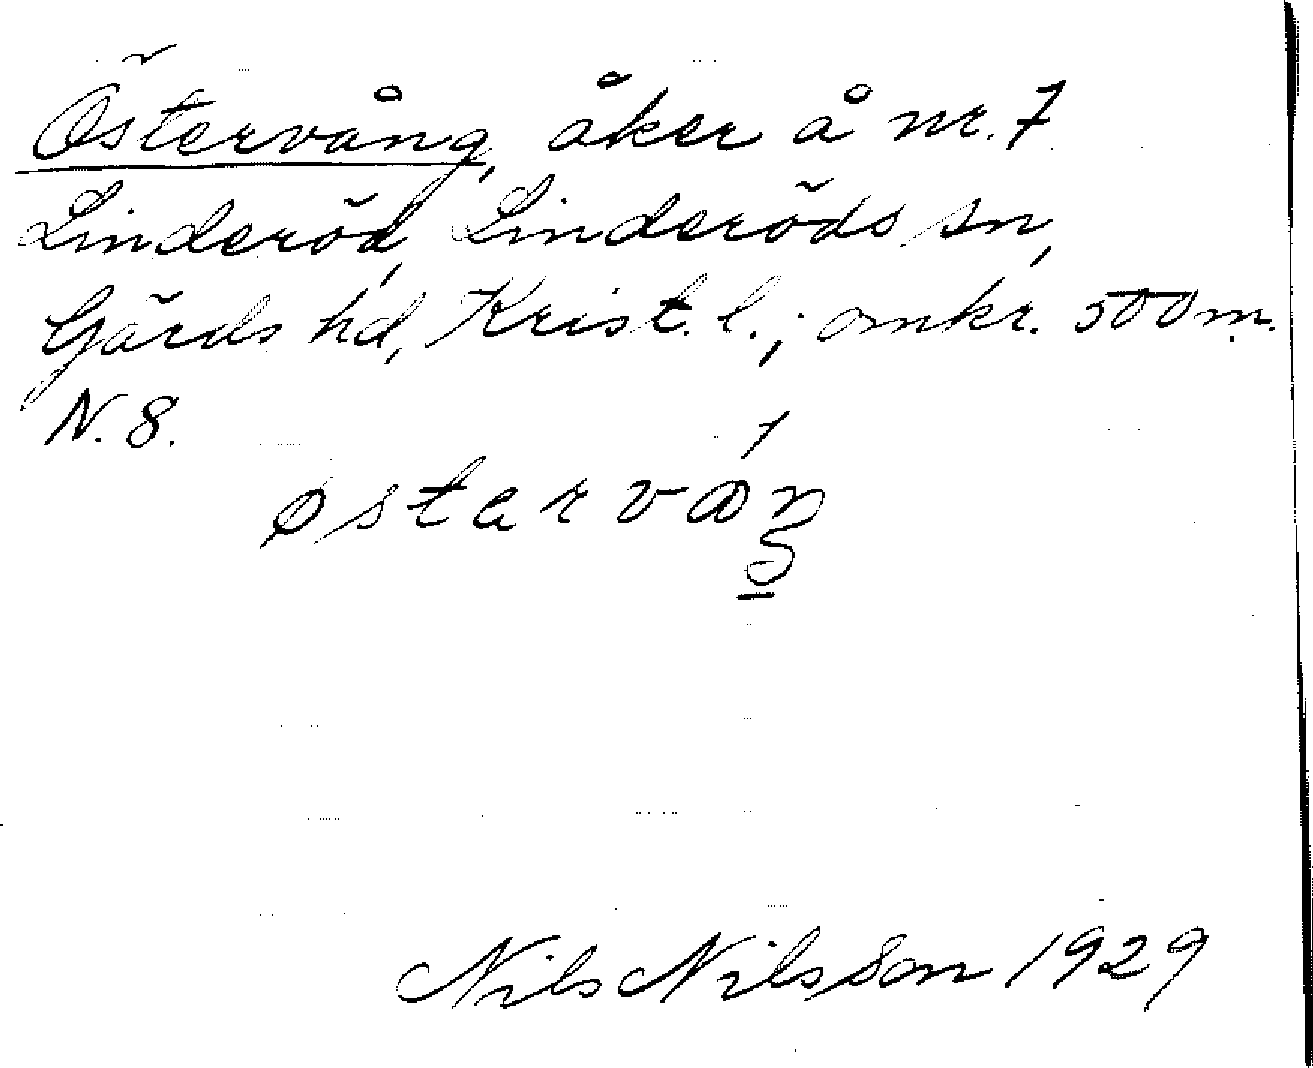 Östervång, åker å nr. 7
Linderöd, Linderöds sn,
Gärds hd, Krist. l.; omkr. 500 m.
N. 8.
østarvaŋ
Nils Nilsson 1929